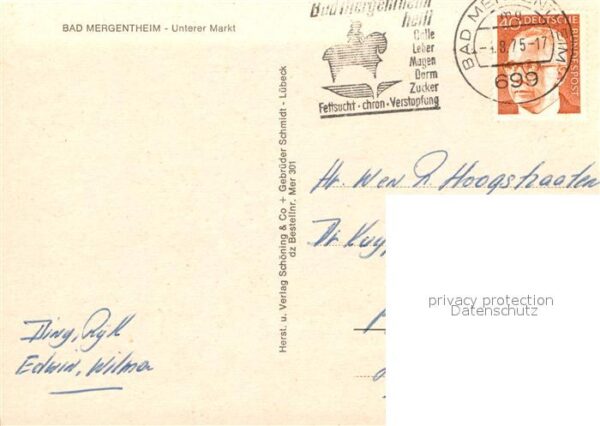 BAD MERGENTHEIM - Unterer Markt
Bad Mergentheim
heilt
Galle
Leber
Magen
Darm
Zucker
Fettsucht - chron - Verstopfung
BAD MERGENTHEIM
-4.8.75-17
699
40
DEUTSCHE
BUNDESPOST
Herst. u. Verlag Schöning & Co + Gebrüder Schmidt - Lübeck
dz Bestellnr. Mer 301
Hoogstraaten
privacy protection
Datenschutz
Edwin, Wilma